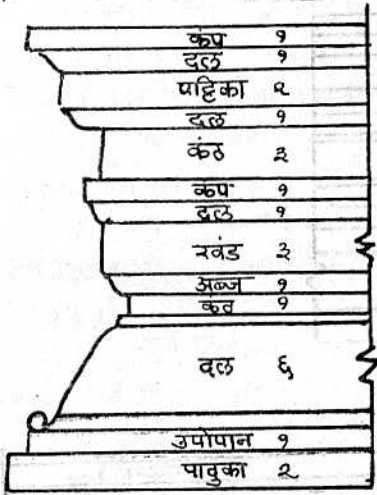 कंप १
दल १
पट्टिका २
दल १
कंठ ३
कंप १
दल १
खंड ३
अब्ज १
कंठ १
दल ६
उपोपान १
पादुका २